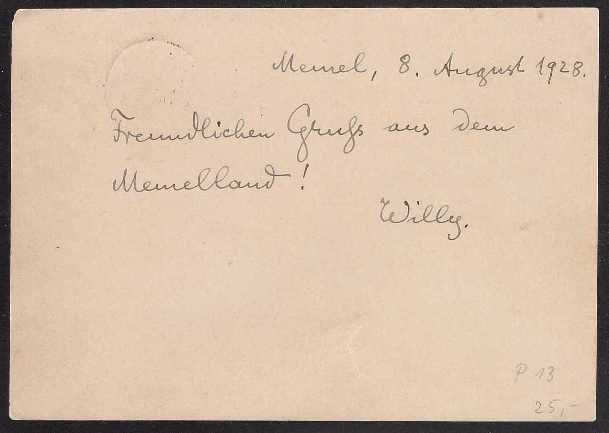 Memel, 8. August 1928.
Freundlichen Gruß aus dem
Memelland!
Willy.
P 13
25,-